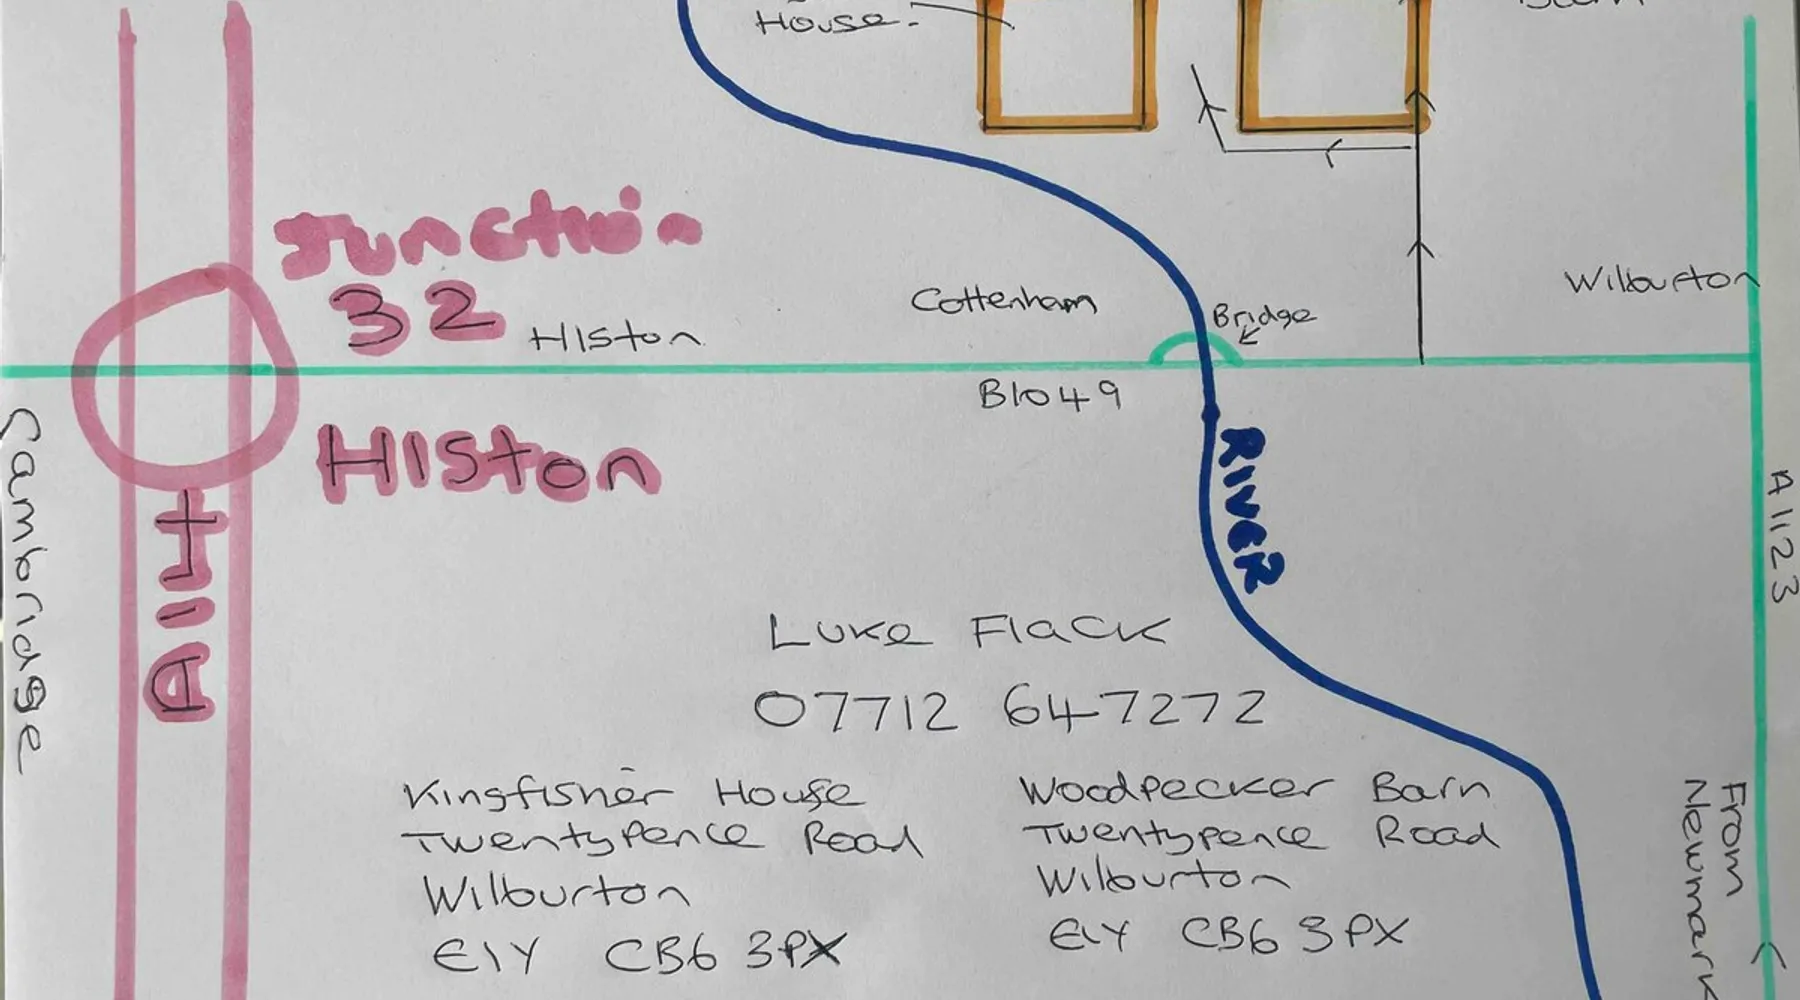 House.
Junction
32
Histon
Cottenham
Bridge
Wilburton
B1049
HIston
RIVER
A1123
Cambridge
A14
Luke Flack
07712 647272
Kingfisher House
Twentypence Road
Wilburton
Ely CB6 3PX
Woodpecker Barn
Twentypence Road
Wilburton
Ely CB6 3PX
From
Newmark